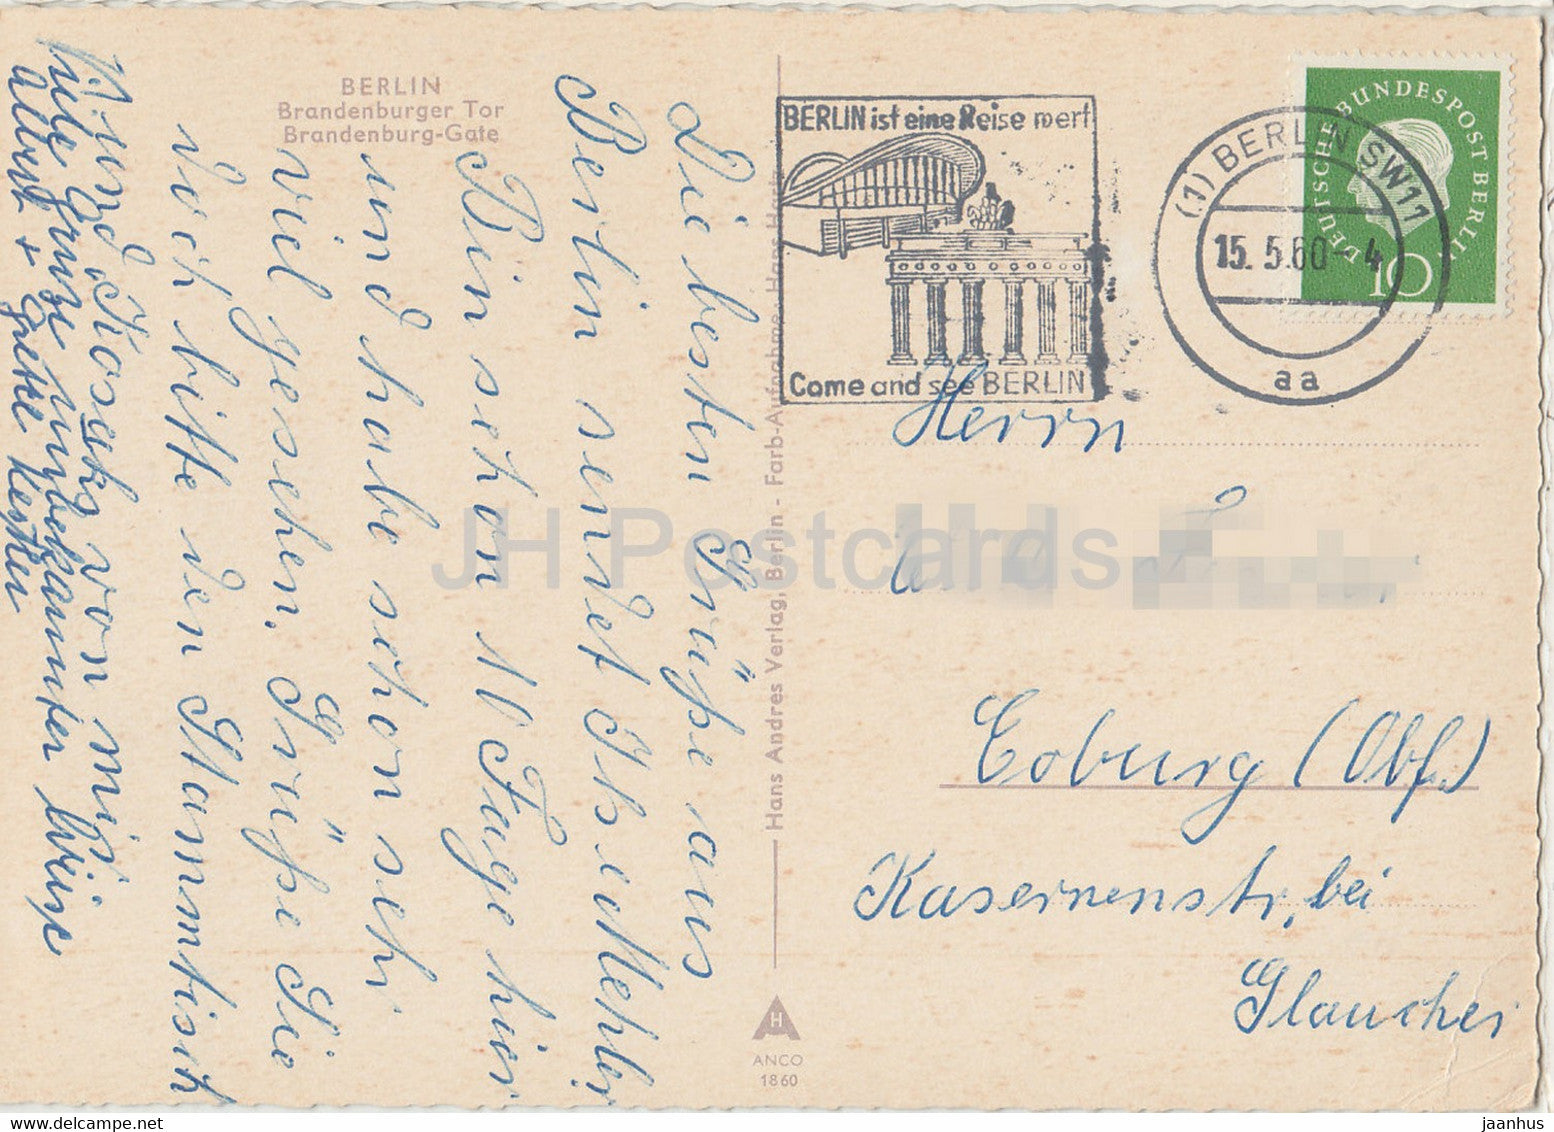 BERLIN
Brandenburger Tor
Brandenburg-Gate
Die besten Grüße aus
Berlin sendet Ihr
Bin schon 10 Tage hier
und habe schon sehr
viel gesehen. Grüße Sie
doch bitte den Stammtisch
und von mir
viele Grüße unbekannter Weise
Albert + Grette
Hans Andres Verlag, Berlin - Farb-Aufnahme Hans
H
ANCO
1860
BERLIN ist eine Reise wert
Come and see BERLIN
(1) BERLIN SW11
15. 5.60 - 4
aa
DEUTSCHE BUNDESPOST BERLIN
10
Herrn
Coburg (Obf.)
Kasernenstr, bei
Glaucher
JH Postcards
jaanhus